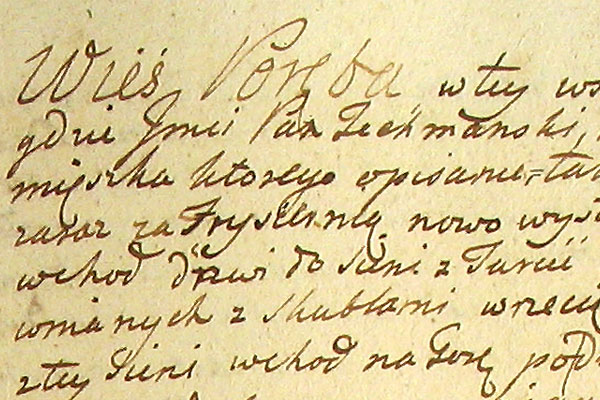 Wieś Poręba w tey ws
gdzie Jmci Pan Zechmanski,
mięszka ktorego opisanie, ta
zaraz za Fryszernią nowo wys
wchod drzwi do Sieni z Tarcic
wmianych z Skublami wrzecią
z tey Sieni wchod na Gorę pod